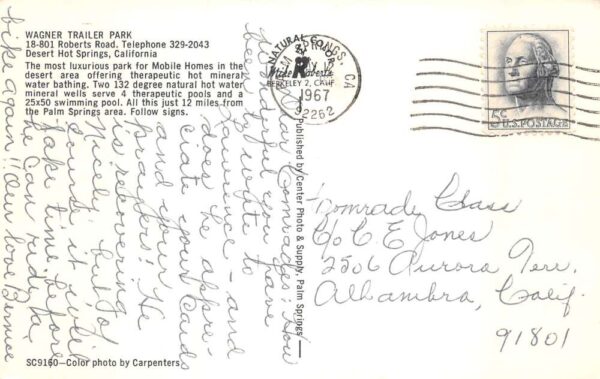 WAGNER TRAILER PARK
18-801 Roberts Road. Telephone 329-2043
Desert Hot Springs, California
The most luxurious park for Mobile Homes in the
desert area offering therapeutic hot mineral
water bathing. Two 132 degree natural hot water
mineral wells serve 4 therapeutic pools and a
25x50 swimming pool. All this just 12 miles from
the Palm Springs area. Follow signs.
Dear Comrades: How
wonderful you have
been to write to
Laurence - and
does he appre-
ciate your cards
and your
prayers! He
is recovering
nicely but of
course it will
take time before
he can ride
bike again! Our love Bernice
SC9160—Color photo by Carpenters
Published by Center Photo & Supply, Palm Springs
NATURAL COLOR
Mike Roberts
BERKELEY 2, CALIF
SPRINGS, CA
1967
92262
5¢ U.S. POSTAGE
Comrady Class
C/o C E Jones
2506 Aurora Terr.
Alhambra, Calif.
91801